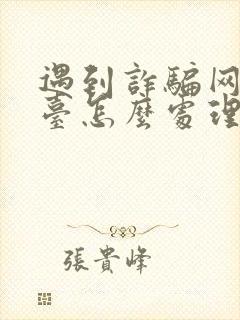 遇到詐騙网
臺怎麽處理
張貴峰